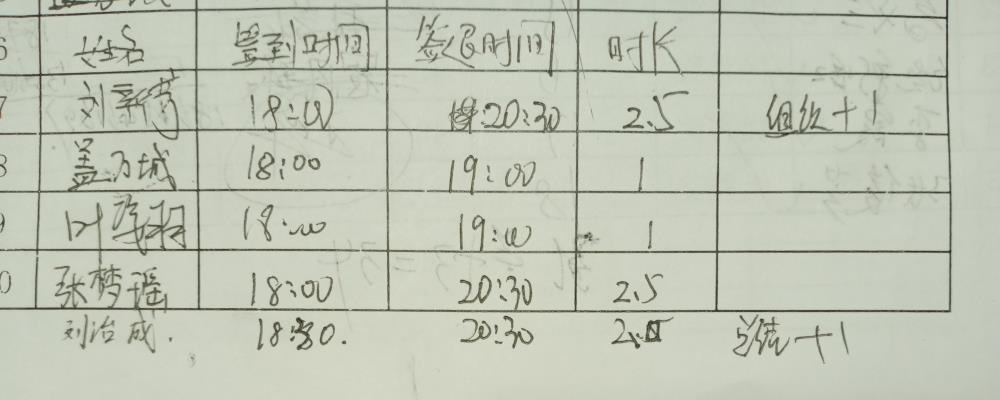 6 姓名 签到时间 签退时间 时长
7 刘新 18:00 20:30 2.5 组织+1
8 盖万城 18:00 19:00 1
9 叶 羽 18:00 19:00 1
0 张梦瑶 18:00 20:30 2.5
刘治成. 18:30. 20:30 2. 总结+1